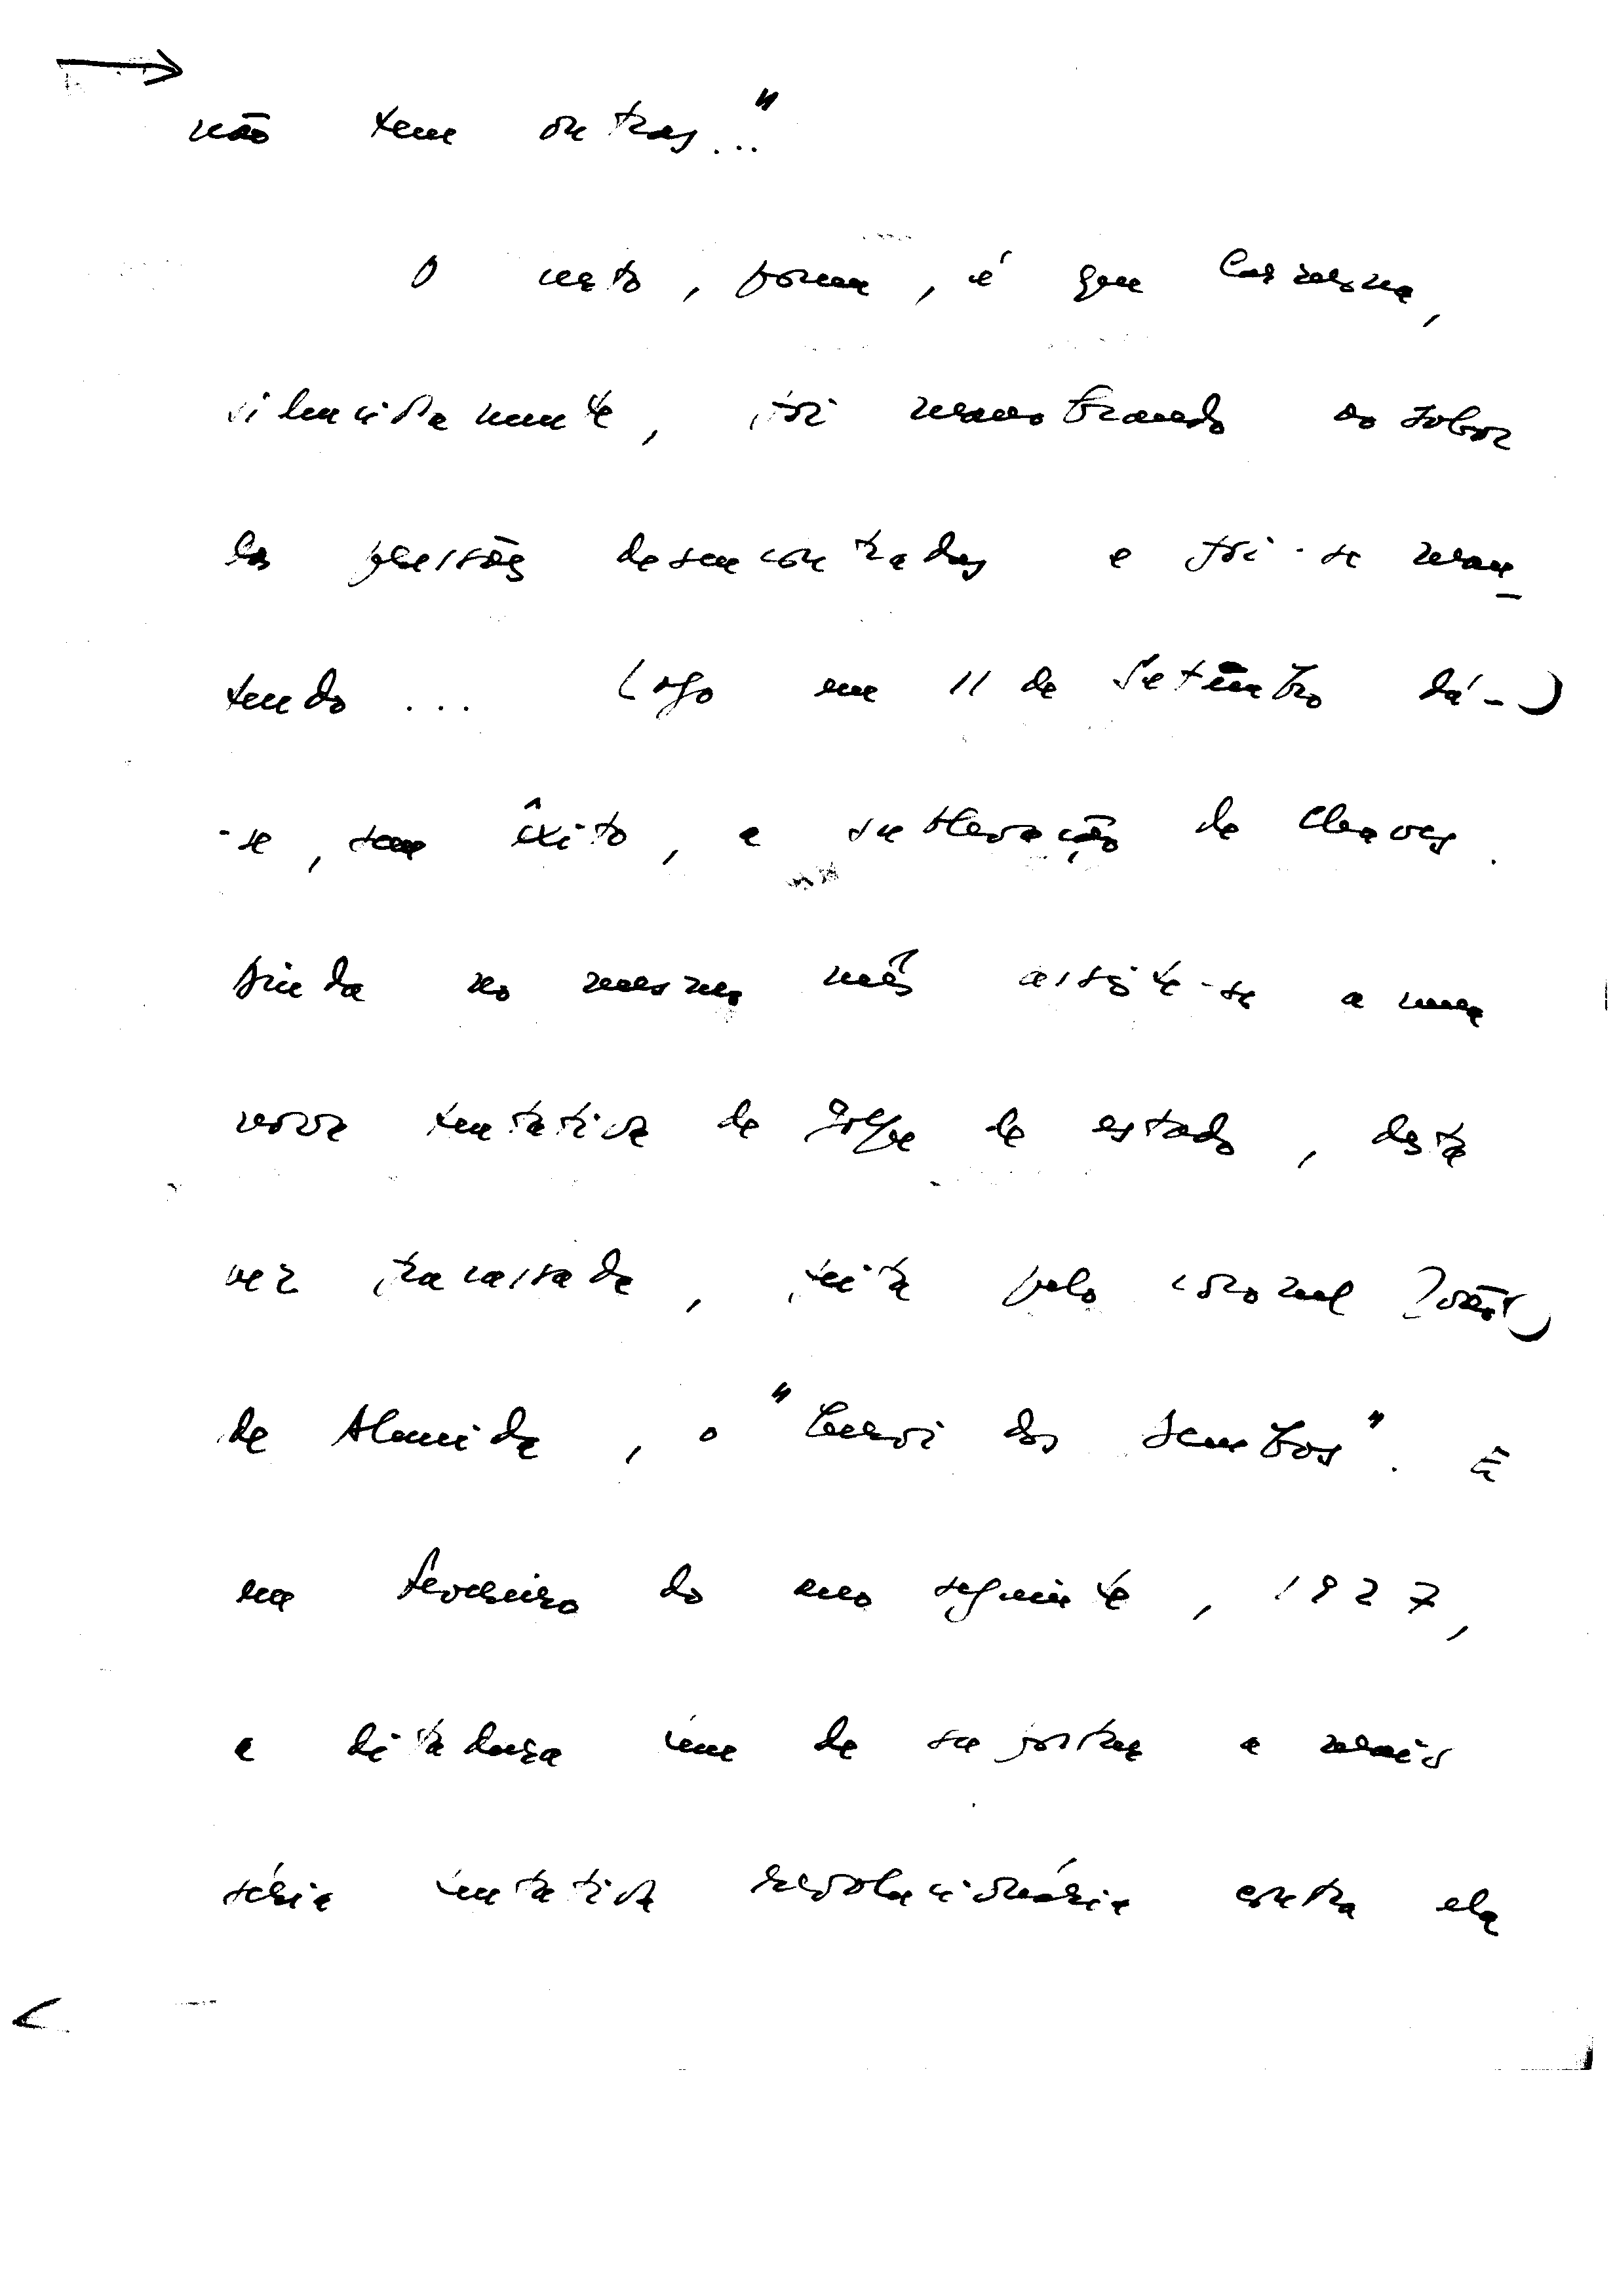 não tem outras..."
O certo, porém, é que Carmona,
silenciosamente, foi manobrando ao sabor
das pressões desencontradas e foi-se man-
tendo ... Logo em 11 de Setembro dá-
-se, sem êxito, a sublevação de Chaves.
Ainda no mesmo mês assiste-se a uma
nova tentativa de golpe de estado, desta
vez fracassada, feita pelo coronel João
de Almeida, o "herói dos Dembos". E
em Fevereiro do ano seguinte, 1927,
a ditadura tem de suportar a mais
séria tentativa revolucionária contra ela